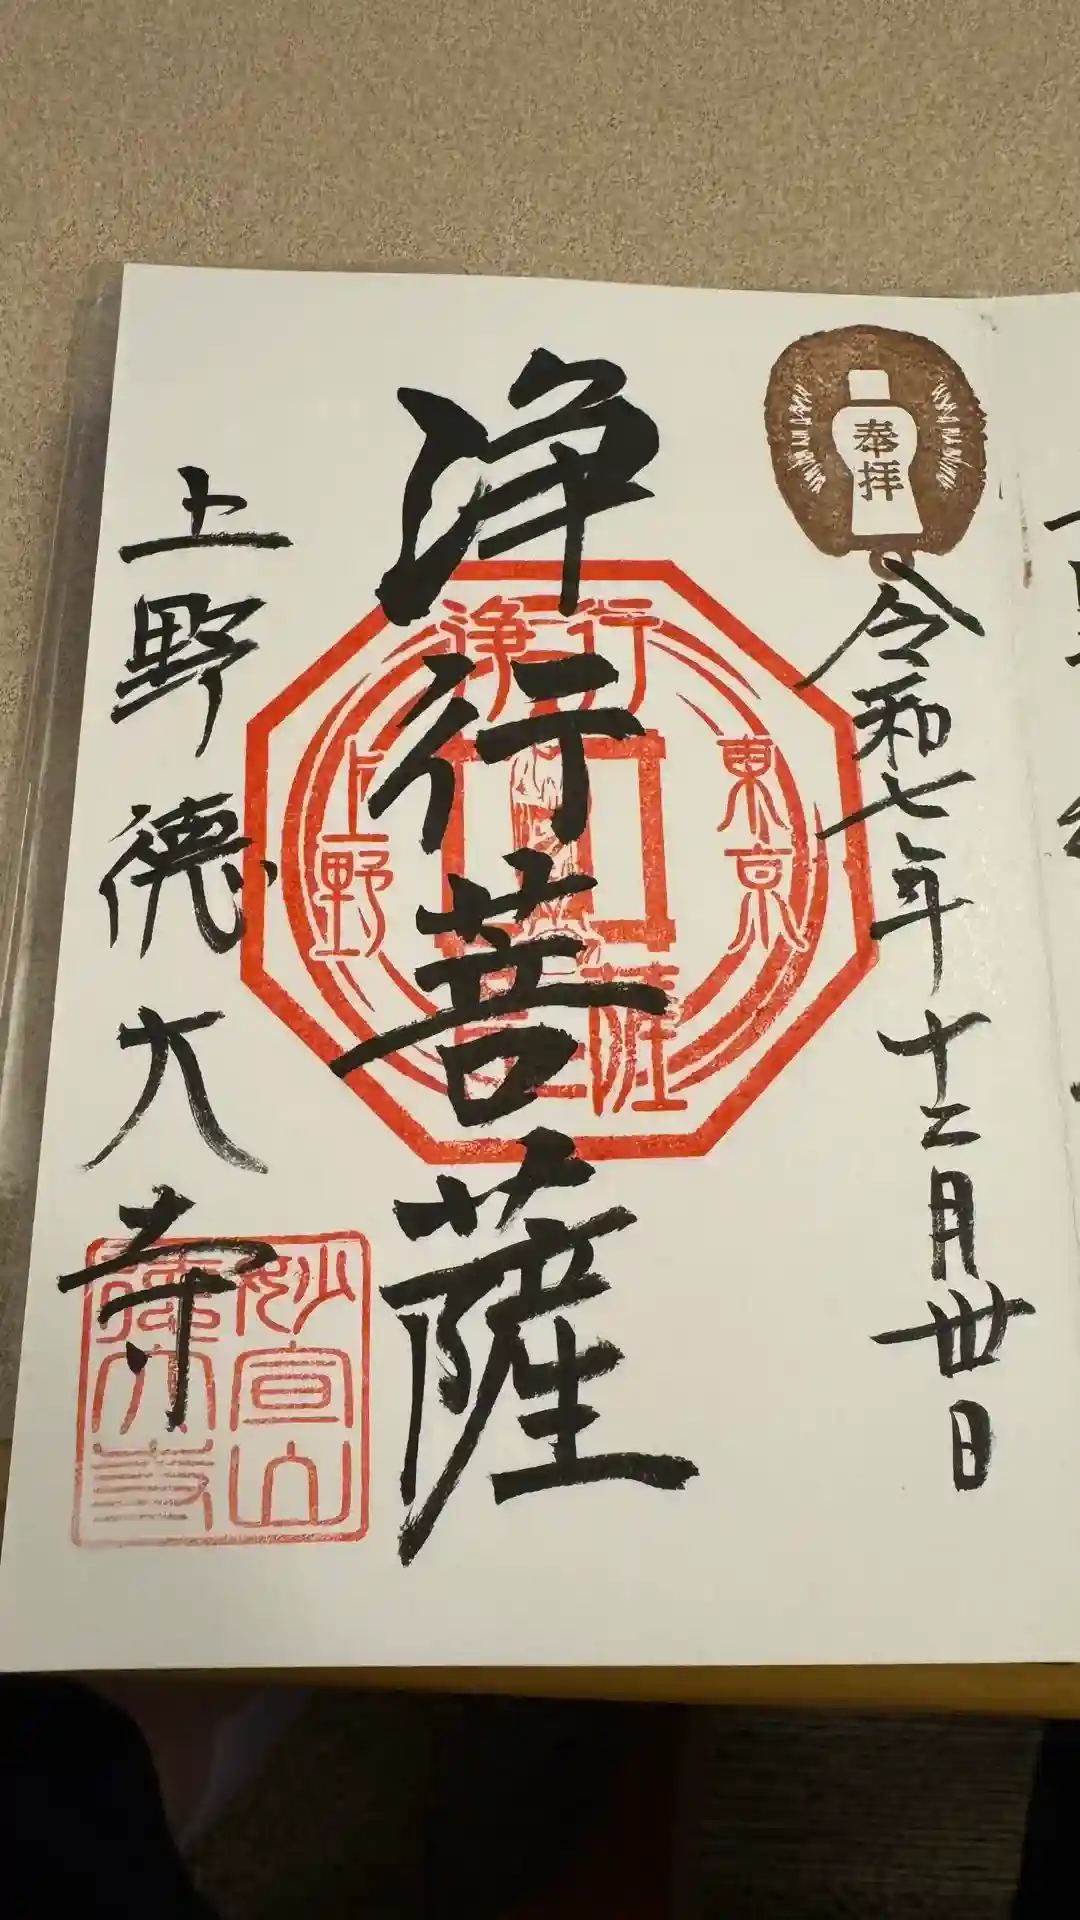 奉拝
令和七年十二月卅日
浄行菩薩
浄行
東京
上野
菩薩
上野徳大寺
妙宣山
徳大寺